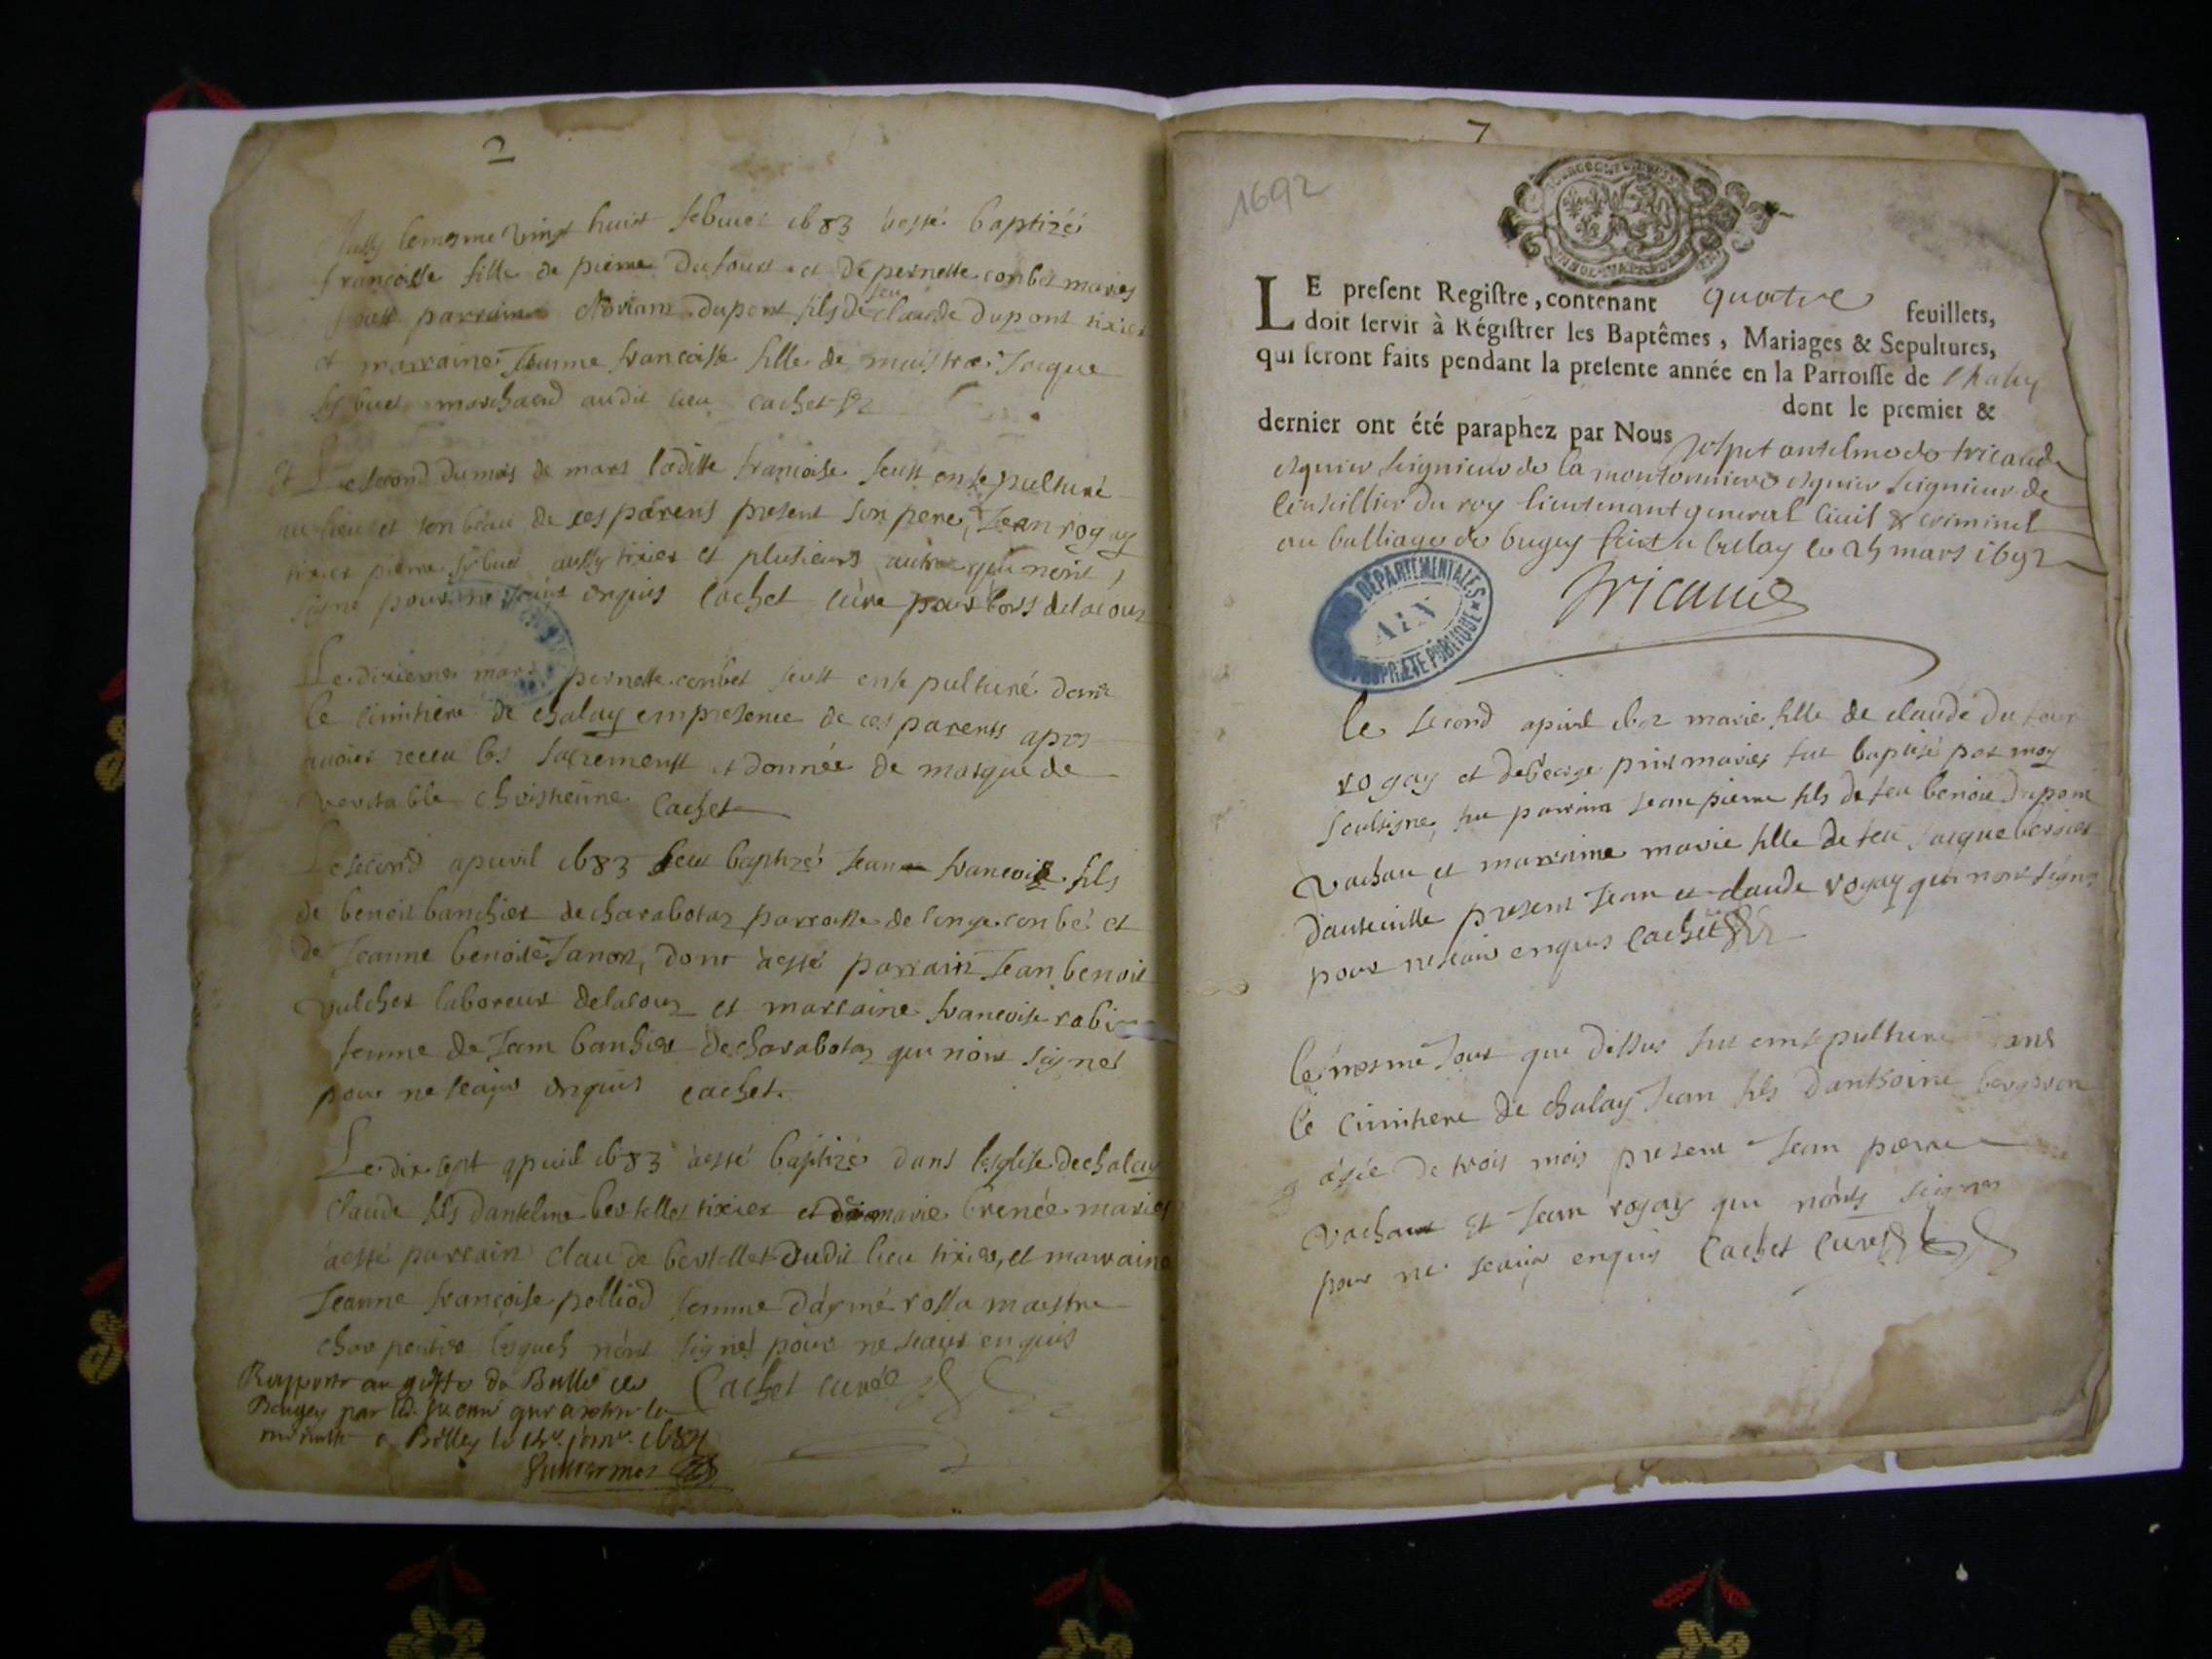 2
Aussy le mesme vingt huict febvrier 1683 a esté baptizéé
francoisse fille de pierre Dufourt et de pernette conbet mariés
parrain Dupont fils de feu claude dupont tixier
et marraine Jeanne francoisse fille de maistre Jacque
marchand audit lieu cachet
Le second du mois de mars laditte francoise feust ensepulturé
au lieu et tonbeau de ses parens present son pere, Jean rogay
tixier pierre aussy tixier et plusieurs autre qui nont
signé pour ne scavoir enquis Cachet cure
Le dixieme mars pernette conbet feust ensepulturé dans
le cimitiere de chalay empresence de ces parents apres
avoir receu les sacrements et donnée de marque de
veritable chrestienne Cachet
Le second apvril 1683 feut baptizé Jean francois fils
de benoit banchiet de charabotaz parroisse de longe conbe et
de Jeanne benoite Janon, dont a esté parrain Jean benoit
vulchet laboreur de lacouz et marraine francoise
femme de Jean de charabotaz qui nont signes
pour ne scavoir enquis cachet.
Le dix sept apvril 1683 a esté baptizé dans lesglise de chalay
claude fils danthelme bertellet tixier et de marie brenée mariés
a esté parrain claude bertellet dudit lieu tixier, et marraine
Jeanne francoise polliod femme daymé rossa maistre
charpentier lesquels nont signes pour ne scavoir enquis
Cachet curé
Rapporté au greffe du Balliage de
Beugey par
a Belley le janv. 1684
7
1692
LE present Registre, contenant quatre feuillets,
doit servir à Régistrer les Baptêmes, Mariages & Sepultures,
qui seront faits pendant la presente année en la Parroisse de Chaley
dont le premier &
dernier ont été paraphez par Nous Joseph antelme de tricaud
esquier seigneur de la montonniere esquier seigneur de
Conseillier du roy lieutenant general civil & criminel
au balliage de bugey fait a belley le 24 mars 1692
Tricaud
DEPARTEMENTALES
AIN
PROPRIETE PUBLIQUE
le second apvril 1692 marie fille de claude dufour
rogay et de george prin mariés fut baptisé par moy
soubsigne, fut parrain Jean pierre fils de feu benoit Dupont
vachat et marraine marie fille de feu Jacque bergier
dauteville present Jean et claude rogay qui nont signé
pour ne scavoir enquis Cachet
le mesme Jour que dessus fut ensepulturé dans
le cimitiere de chalay Jean fils danthoine
agée de trois mois present Jean pierre
vachat et Jean rogay qui nonts signes
pour ne scavoir enquis Cachet curé